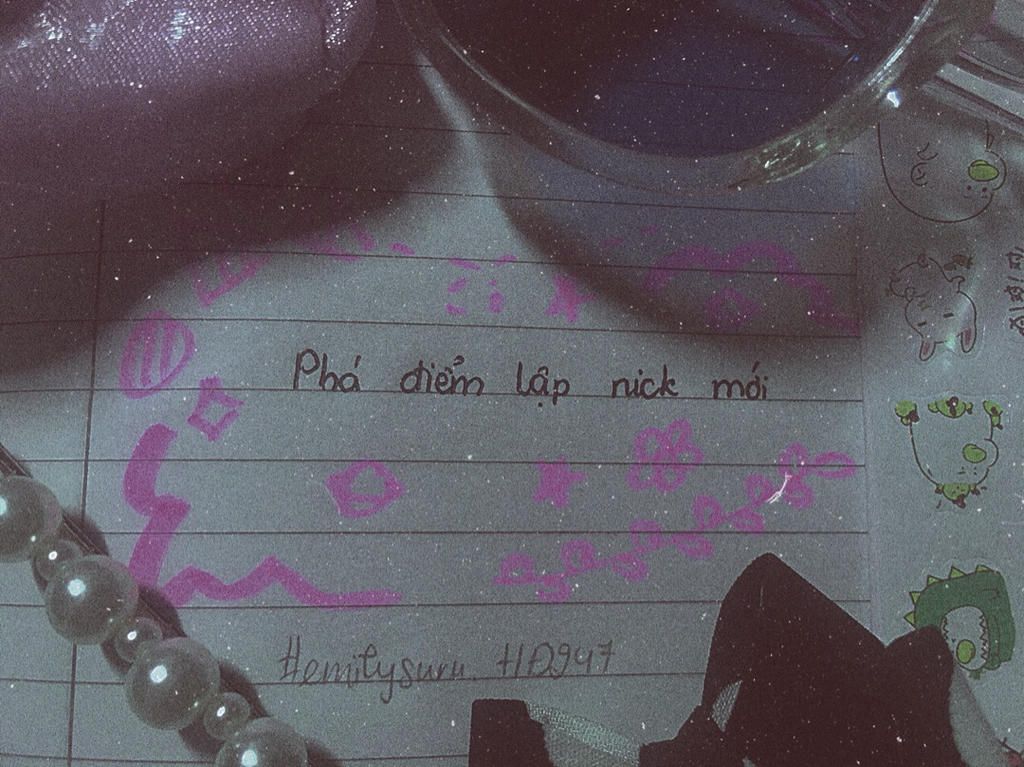 Phá điểm lập nick mới
#emilysuru. #HD947